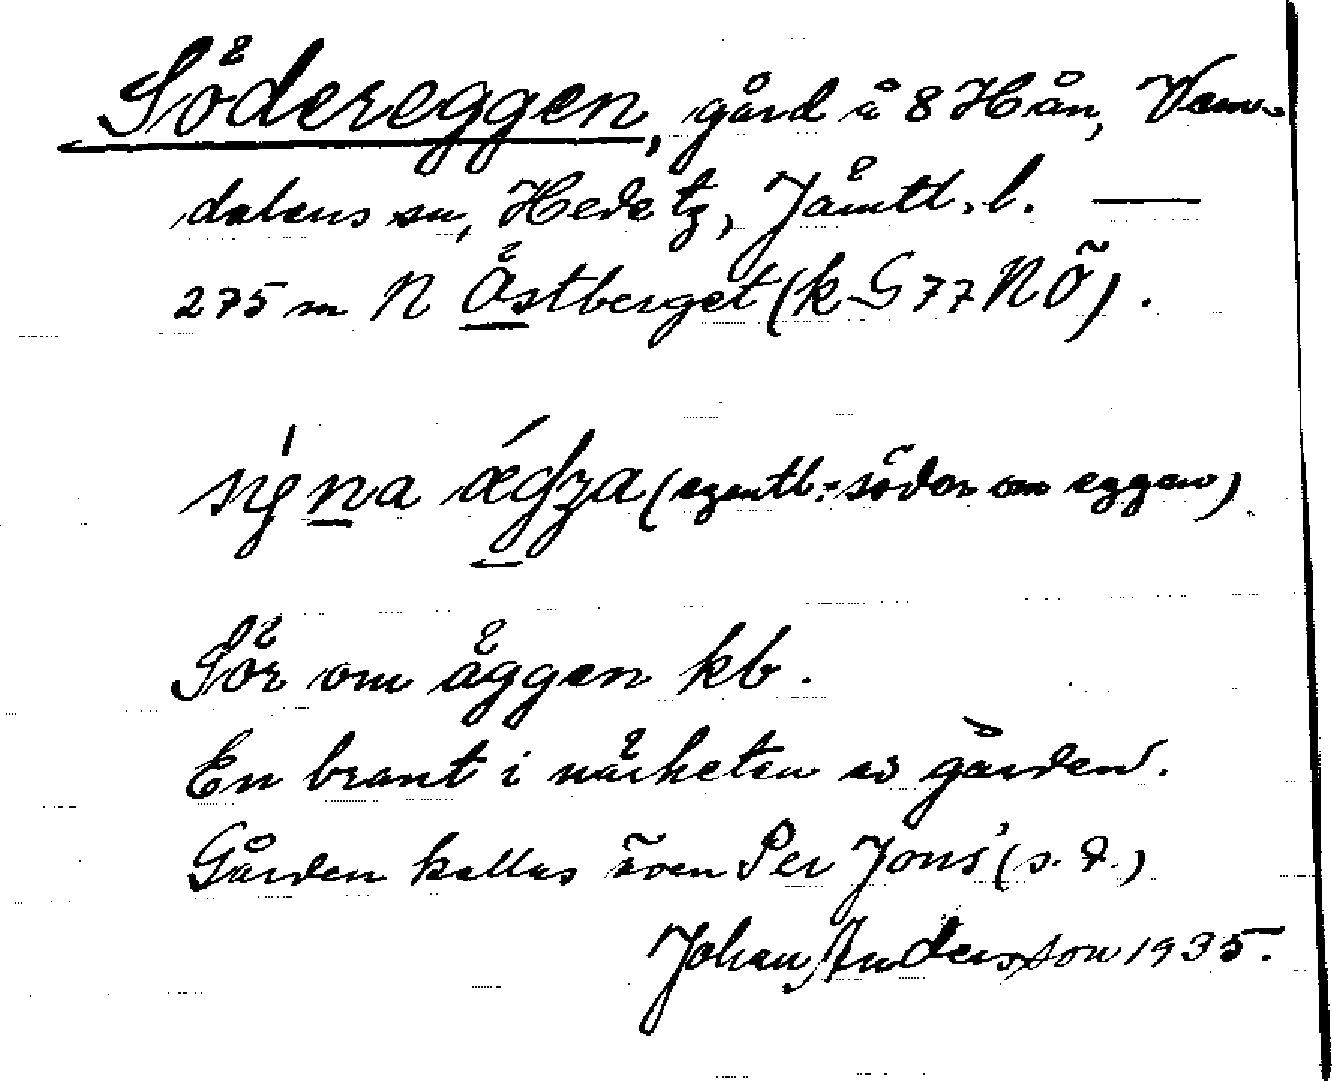 Södereggen, gård å 8 Hån, Vem-
dalens sn, Hede tg, Jämtl. l. —
275 m N Östberget (k G 77 NÖ).
(egentl. söder om eggen)
Sör om äggen kb.
En brant i närheten av gården.
Gården kallas även Per Jons' (s. d.)
Johan Andersson 1935.